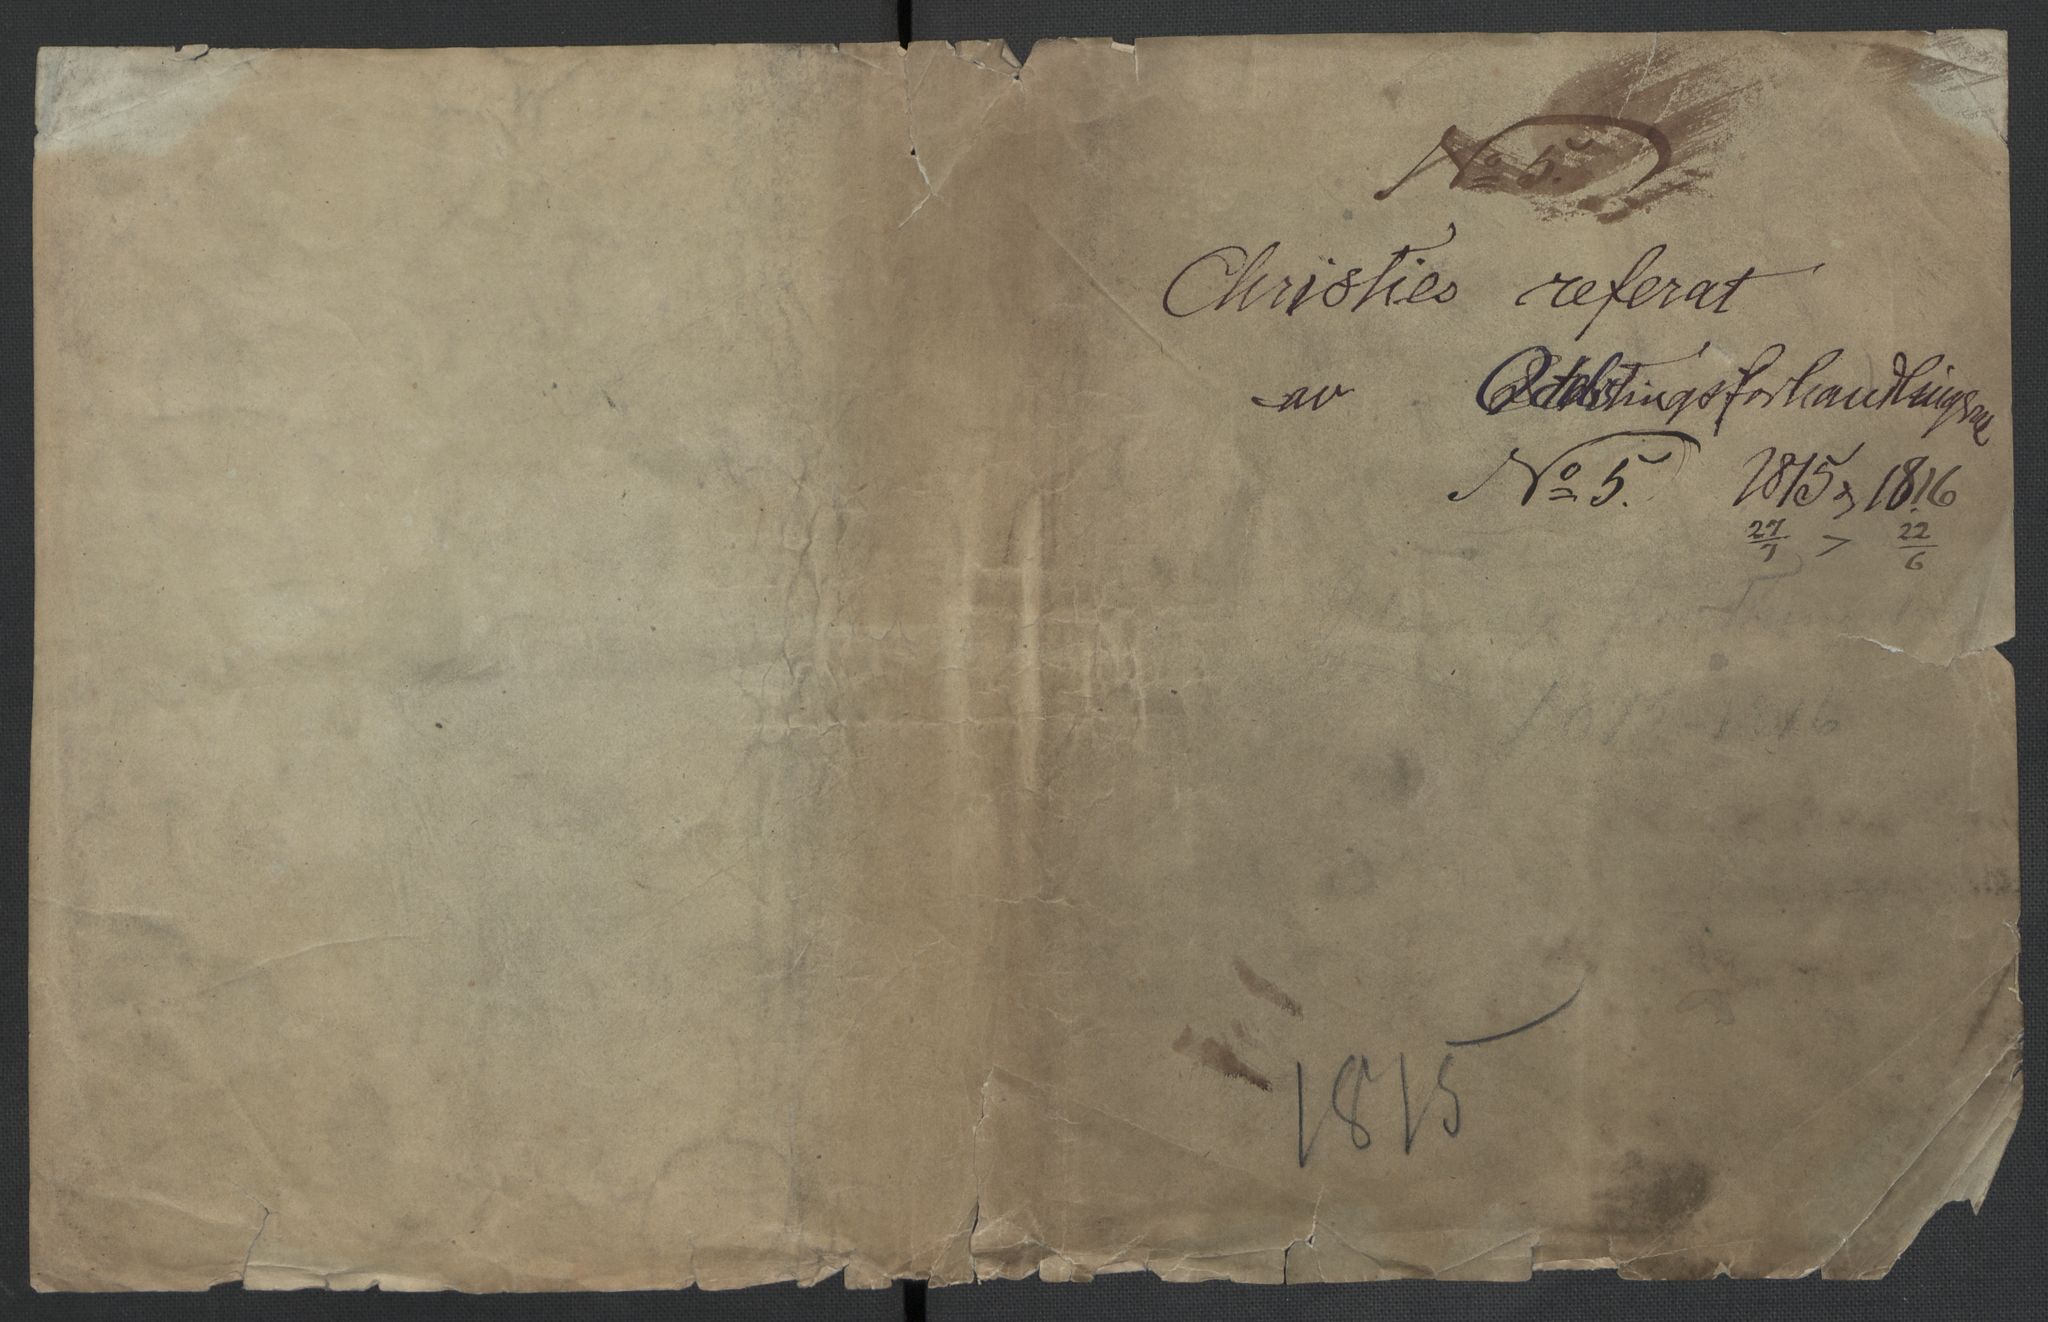 No 5.
Christies referat
av Odelstingsforhandlingerne
No 5. 1815 og 1816
27/7 > 22/6
1815-1816
1815